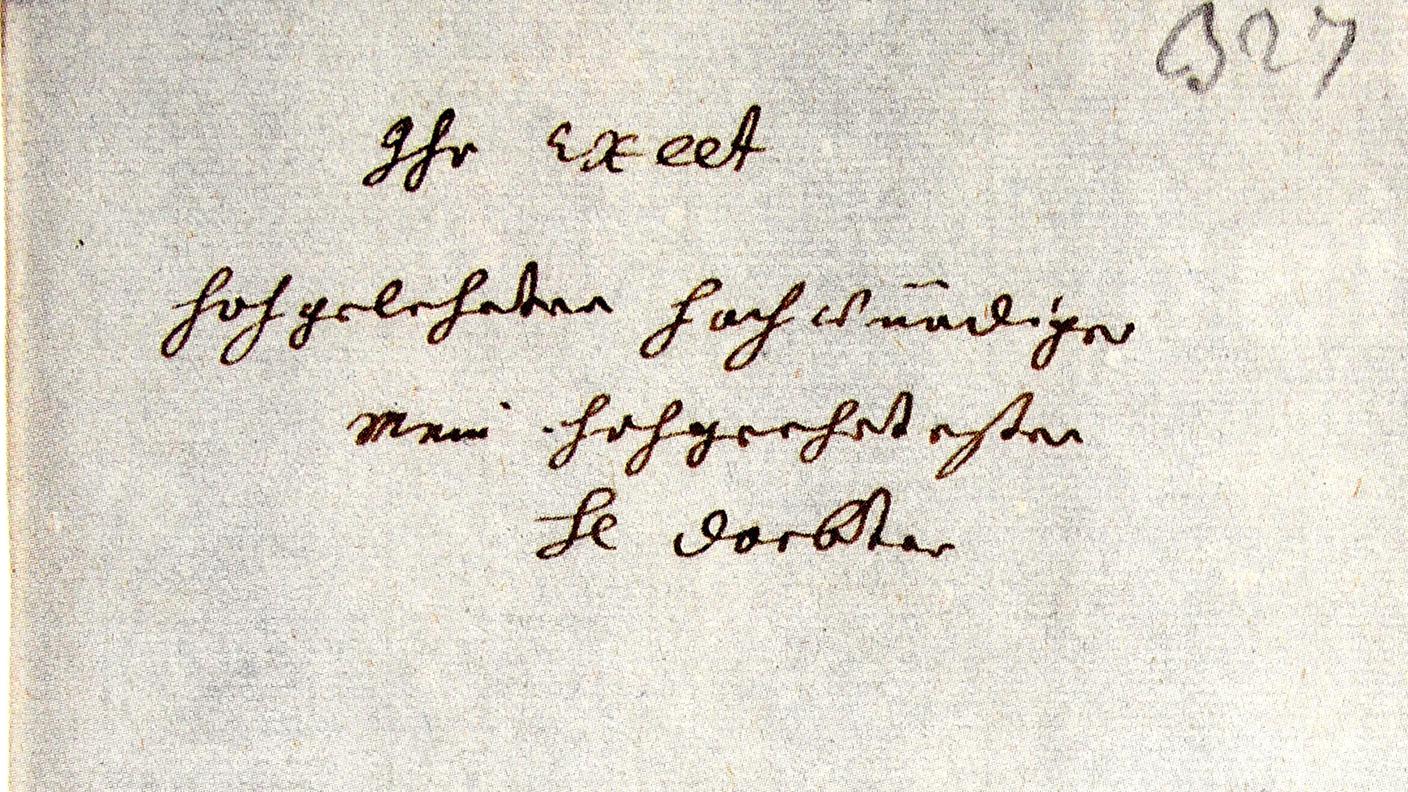 B27
Ihr Excelt
hochgelehrter hochwürdiger
Mein hochgeehrtester
He docktor